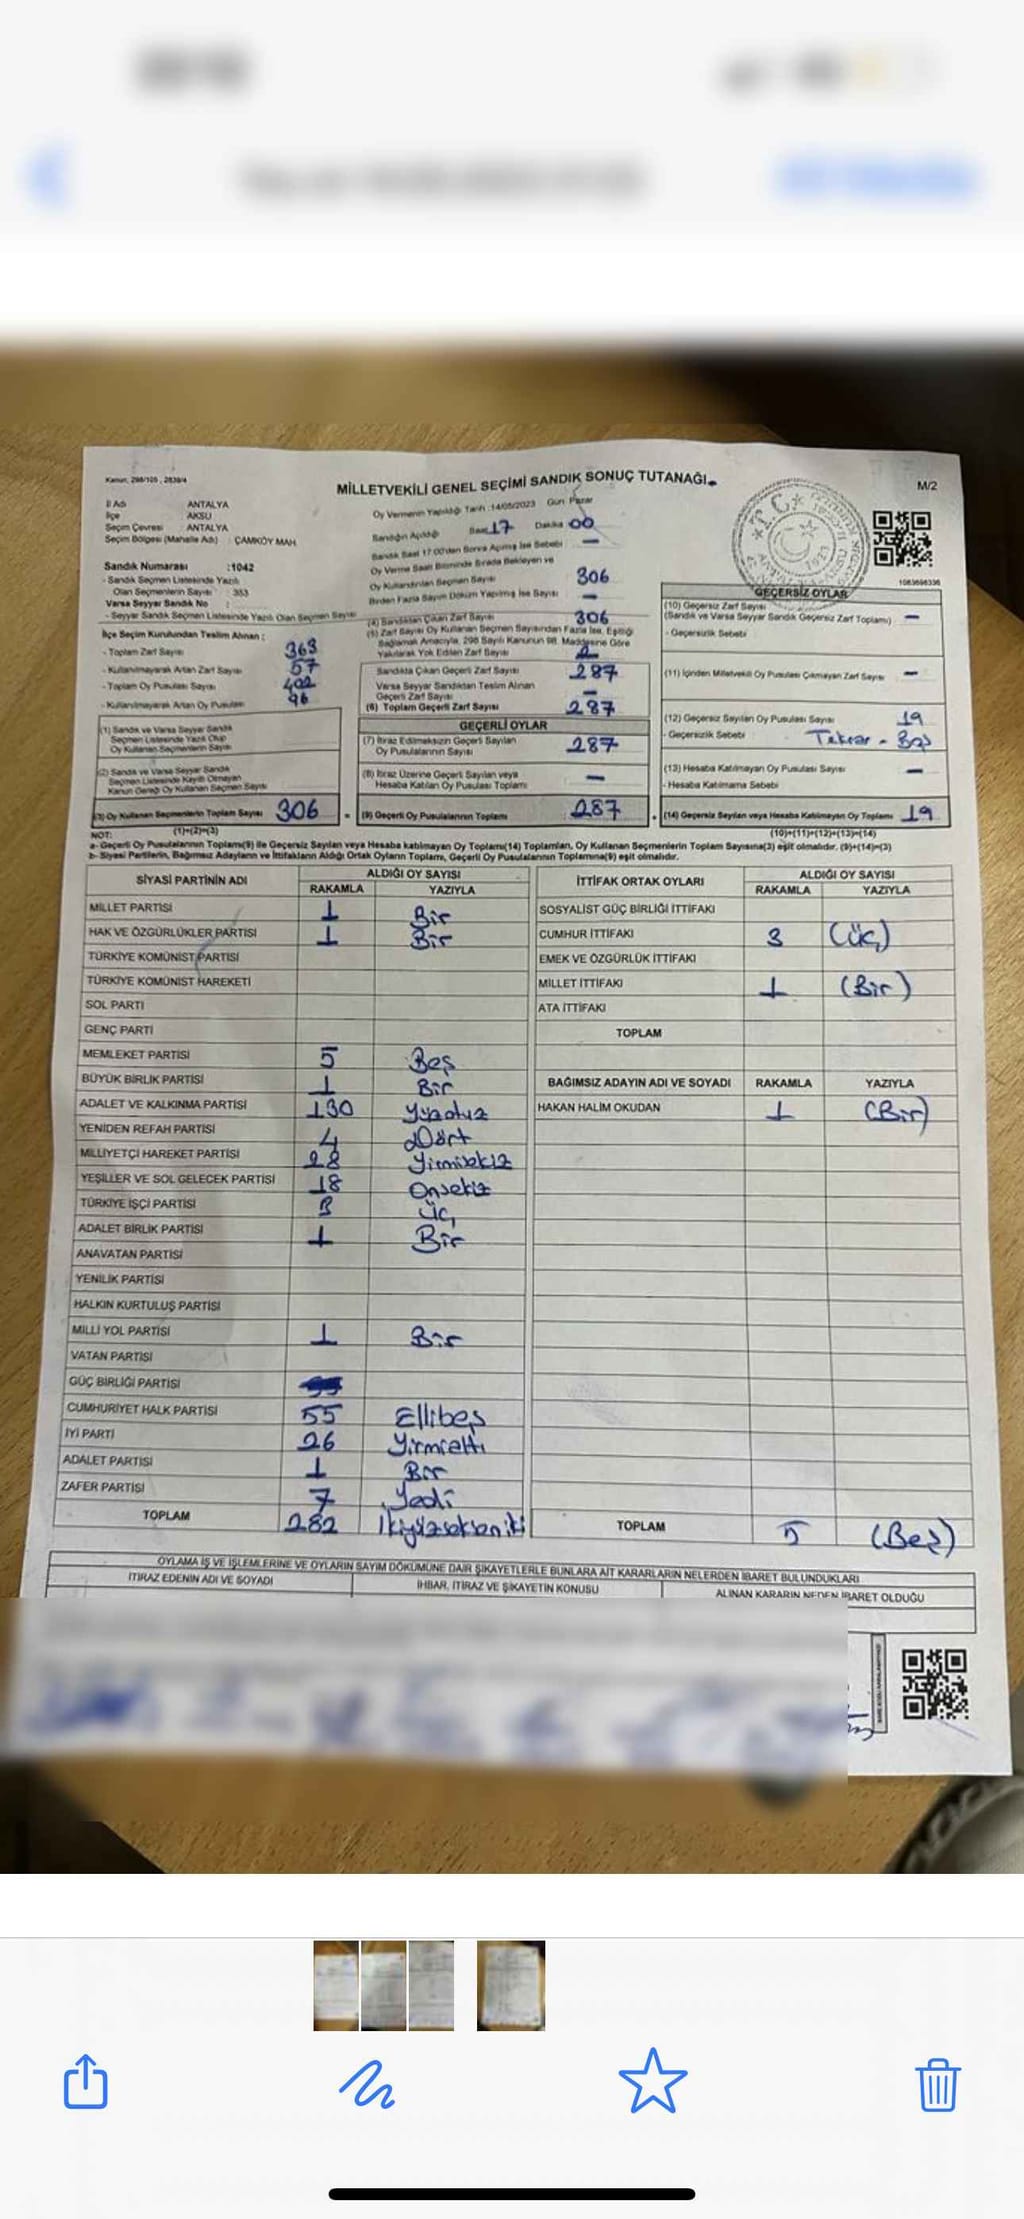 Kanun, 298/105 , 2839/4
MİLLETVEKİLİ GENEL SEÇİMİ SANDIK SONUÇ TUTANAĞI
M/2
İl Adı ANTALYA
İlçe AKSU
Seçim Çevresi ANTALYA
Seçim Bölgesi (Mahalle Adı) : ÇAMKÖY MAH.
Sandık Numarası :1042
- Sandık Seçmen Listesinde Yazılı
Olan Seçmenlerin Sayısı : 353
Varsa Seyyar Sandık No :
- Seyyar Sandık Seçmen Listesinde Yazılı Olan Seçmen Sayısı
İlçe Seçim Kurulundan Teslim Alınan :
- Toplam Zarf Sayısı 363
- Kullanılmayarak Artan Zarf Sayısı 57
- Toplam Oy Pusulası Sayısı 402
- Kullanılmayarak Artan Oy Pusulası 96
(1) Sandık ve Varsa Seyyar Sandık
Seçmen Listesinde Yazılı Olup
Oy Kullanan Seçmenlerin Sayısı
(2) Sandık ve Varsa Seyyar Sandık
Seçmen Listesinde Kayıtlı Olmayan
Kanun Gereği Oy Kullanan Seçmen Sayısı
(3) Oy Kullanan Seçmenlerin Toplam Sayısı 306
(1)+(2)=(3)
Oy Vermenin Yapıldığı Tarih :14/05/2023 Gün : Pazar
Sandığın Açıldığı Saat 17 Dakika 00
Sandık Saat 17:00'den Sonra Açılmış İse Sebebi —
Oy Verme Saati Bitiminde Sırada Bekleyen ve
Oy Kullandırılan Seçmen Sayısı 306
Birden Fazla Sayım Döküm Yapılmış İse Sayısı —
(4) Sandıktan Çıkan Zarf Sayısı 306
(5) Zarf Sayısı Oy Kullanan Seçmen Sayısından Fazla İse, Eşitliği
Sağlamak Amacıyla, 298 Sayılı Kanunun 98. Maddesine Göre
Yakılarak Yok Edilen Zarf Sayısı
Sandıkta Çıkan Geçerli Zarf Sayısı 287
Varsa Seyyar Sandıktan Teslim Alınan
Geçerli Zarf Sayısı —
(6) Toplam Geçerli Zarf Sayısı 287
GEÇERLİ OYLAR
(7) İtiraz Edilmeksizin Geçerli Sayılan
Oy Pusulalarının Sayısı 287
(8) İtiraz Üzerine Geçerli Sayılan veya
Hesaba Katılan Oy Pusulası Toplamı —
(9) Geçerli Oy Pusulalarının Toplamı 287
1083698336
GEÇERSİZ OYLAR
(10) Geçersiz Zarf Sayısı
(Sandık ve Varsa Seyyar Sandık Geçersiz Zarf Toplamı) —
- Geçersizlik Sebebi
(11) İçinden Milletvekili Oy Pusulası Çıkmayan Zarf Sayısı —
(12) Geçersiz Sayılan Oy Pusulası Sayısı 19
- Geçersizlik Sebebi Tekrar - Boş
(13) Hesaba Katılmayan Oy Pusulası Sayısı —
- Hesaba Katılmama Sebebi
(14) Geçersiz Sayılan veya Hesaba Katılmayan Oy Toplamı 19
(10)+(11)+(12)+(13)=(14)
NOT:
a- Geçerli Oy Pusulalarının Toplamı(9) ile Geçersiz Sayılan veya Hesaba katılmayan Oy Toplamı(14) Toplamları, Oy Kullanan Seçmenlerin Toplam Sayısına(3) eşit olmalıdır. (9)+(14)=(3)
b- Siyasi Partilerin, Bağımsız Adayların ve İttifakların Aldığı Ortak Oyların Toplamı, Geçerli Oy Pusulalarının Toplamına(9) eşit olmalıdır.
SİYASİ PARTİNİN ADI ALDIĞI OY SAYISI
RAKAMLA YAZIYLA
MİLLET PARTİSİ 1 Bir
HAK VE ÖZGÜRLÜKLER PARTİSİ 1 Bir
TÜRKİYE KOMÜNİST PARTİSİ
TÜRKİYE KOMÜNİST HAREKETİ
SOL PARTİ
GENÇ PARTİ
MEMLEKET PARTİSİ 5 Beş
BÜYÜK BİRLİK PARTİSİ 1 Bir
ADALET VE KALKINMA PARTİSİ 130 Yüzotuz
YENİDEN REFAH PARTİSİ 4 Dört
MİLLİYETÇİ HAREKET PARTİSİ 28 Yirmisekiz
YEŞİLLER VE SOL GELECEK PARTİSİ 18 Onsekiz
TÜRKİYE İŞÇİ PARTİSİ 3 Üç
ADALET BİRLİK PARTİSİ 1 Bir
ANAVATAN PARTİSİ
YENİLİK PARTİSİ
HALKIN KURTULUŞ PARTİSİ
MİLLİ YOL PARTİSİ 1 Bir
VATAN PARTİSİ
GÜÇ BİRLİĞİ PARTİSİ
CUMHURİYET HALK PARTİSİ 55 Ellibeş
İYİ PARTİ 26 Yirmialtı
ADALET PARTİSİ 1 Bir
ZAFER PARTİSİ 7 Yedi
TOPLAM 282 İkiyüzsekseniki
İTTİFAK ORTAK OYLARI ALDIĞI OY SAYISI
RAKAMLA YAZIYLA
SOSYALİST GÜÇ BİRLİĞİ İTTİFAKI
CUMHUR İTTİFAKI 3 (Üç)
EMEK VE ÖZGÜRLÜK İTTİFAKI
MİLLET İTTİFAKI 1 (Bir)
ATA İTTİFAKI
TOPLAM
BAĞIMSIZ ADAYIN ADI VE SOYADI RAKAMLA YAZIYLA
HAKAN HALİM OKUDAN 1 (Bir)
TOPLAM 5 (Beş)
OYLAMA İŞ VE İŞLEMLERİNE VE OYLARIN SAYIM DÖKÜMÜNE DAİR ŞİKAYETLERLE BUNLARA AİT KARARLARIN NELERDEN İBARET BULUNDUKLARI
İTİRAZ EDENİN ADI VE SOYADI İHBAR, İTİRAZ VE ŞİKAYETİN KONUSU ALINAN KARARIN NEDEN İBARET OLDUĞU